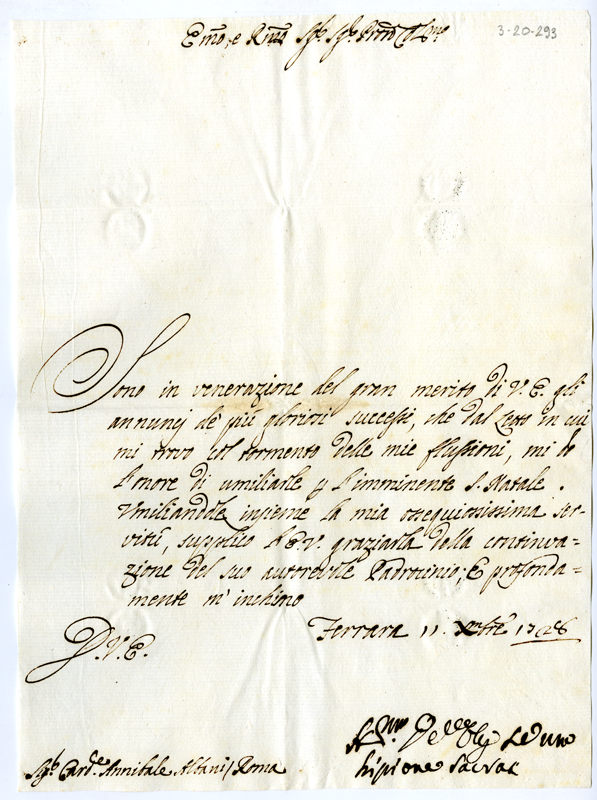 Em̃o, e Rm̃o Sig.r Sig.r Pron Col.mo
3-20-293
Sono in venerazione del gran merito di V. E. gli
annunzj de' più gloriosi successi, che dal letto in cui
mi trovo col tormento delle mie flussioni, mi dò
l'onore di umiliarle p l'imminente S. Natale.
Umiliandole insieme la mia ossequiosissima ser-
vitù, supplico A E.V. graziarla della continua=
zione del suo autorevole Padrocinio; E profonda=
mente m'inchino
Ferrara 11. Xmbre 1728
D. V. E.
Sig.r Card.e Annibale Albani / Roma